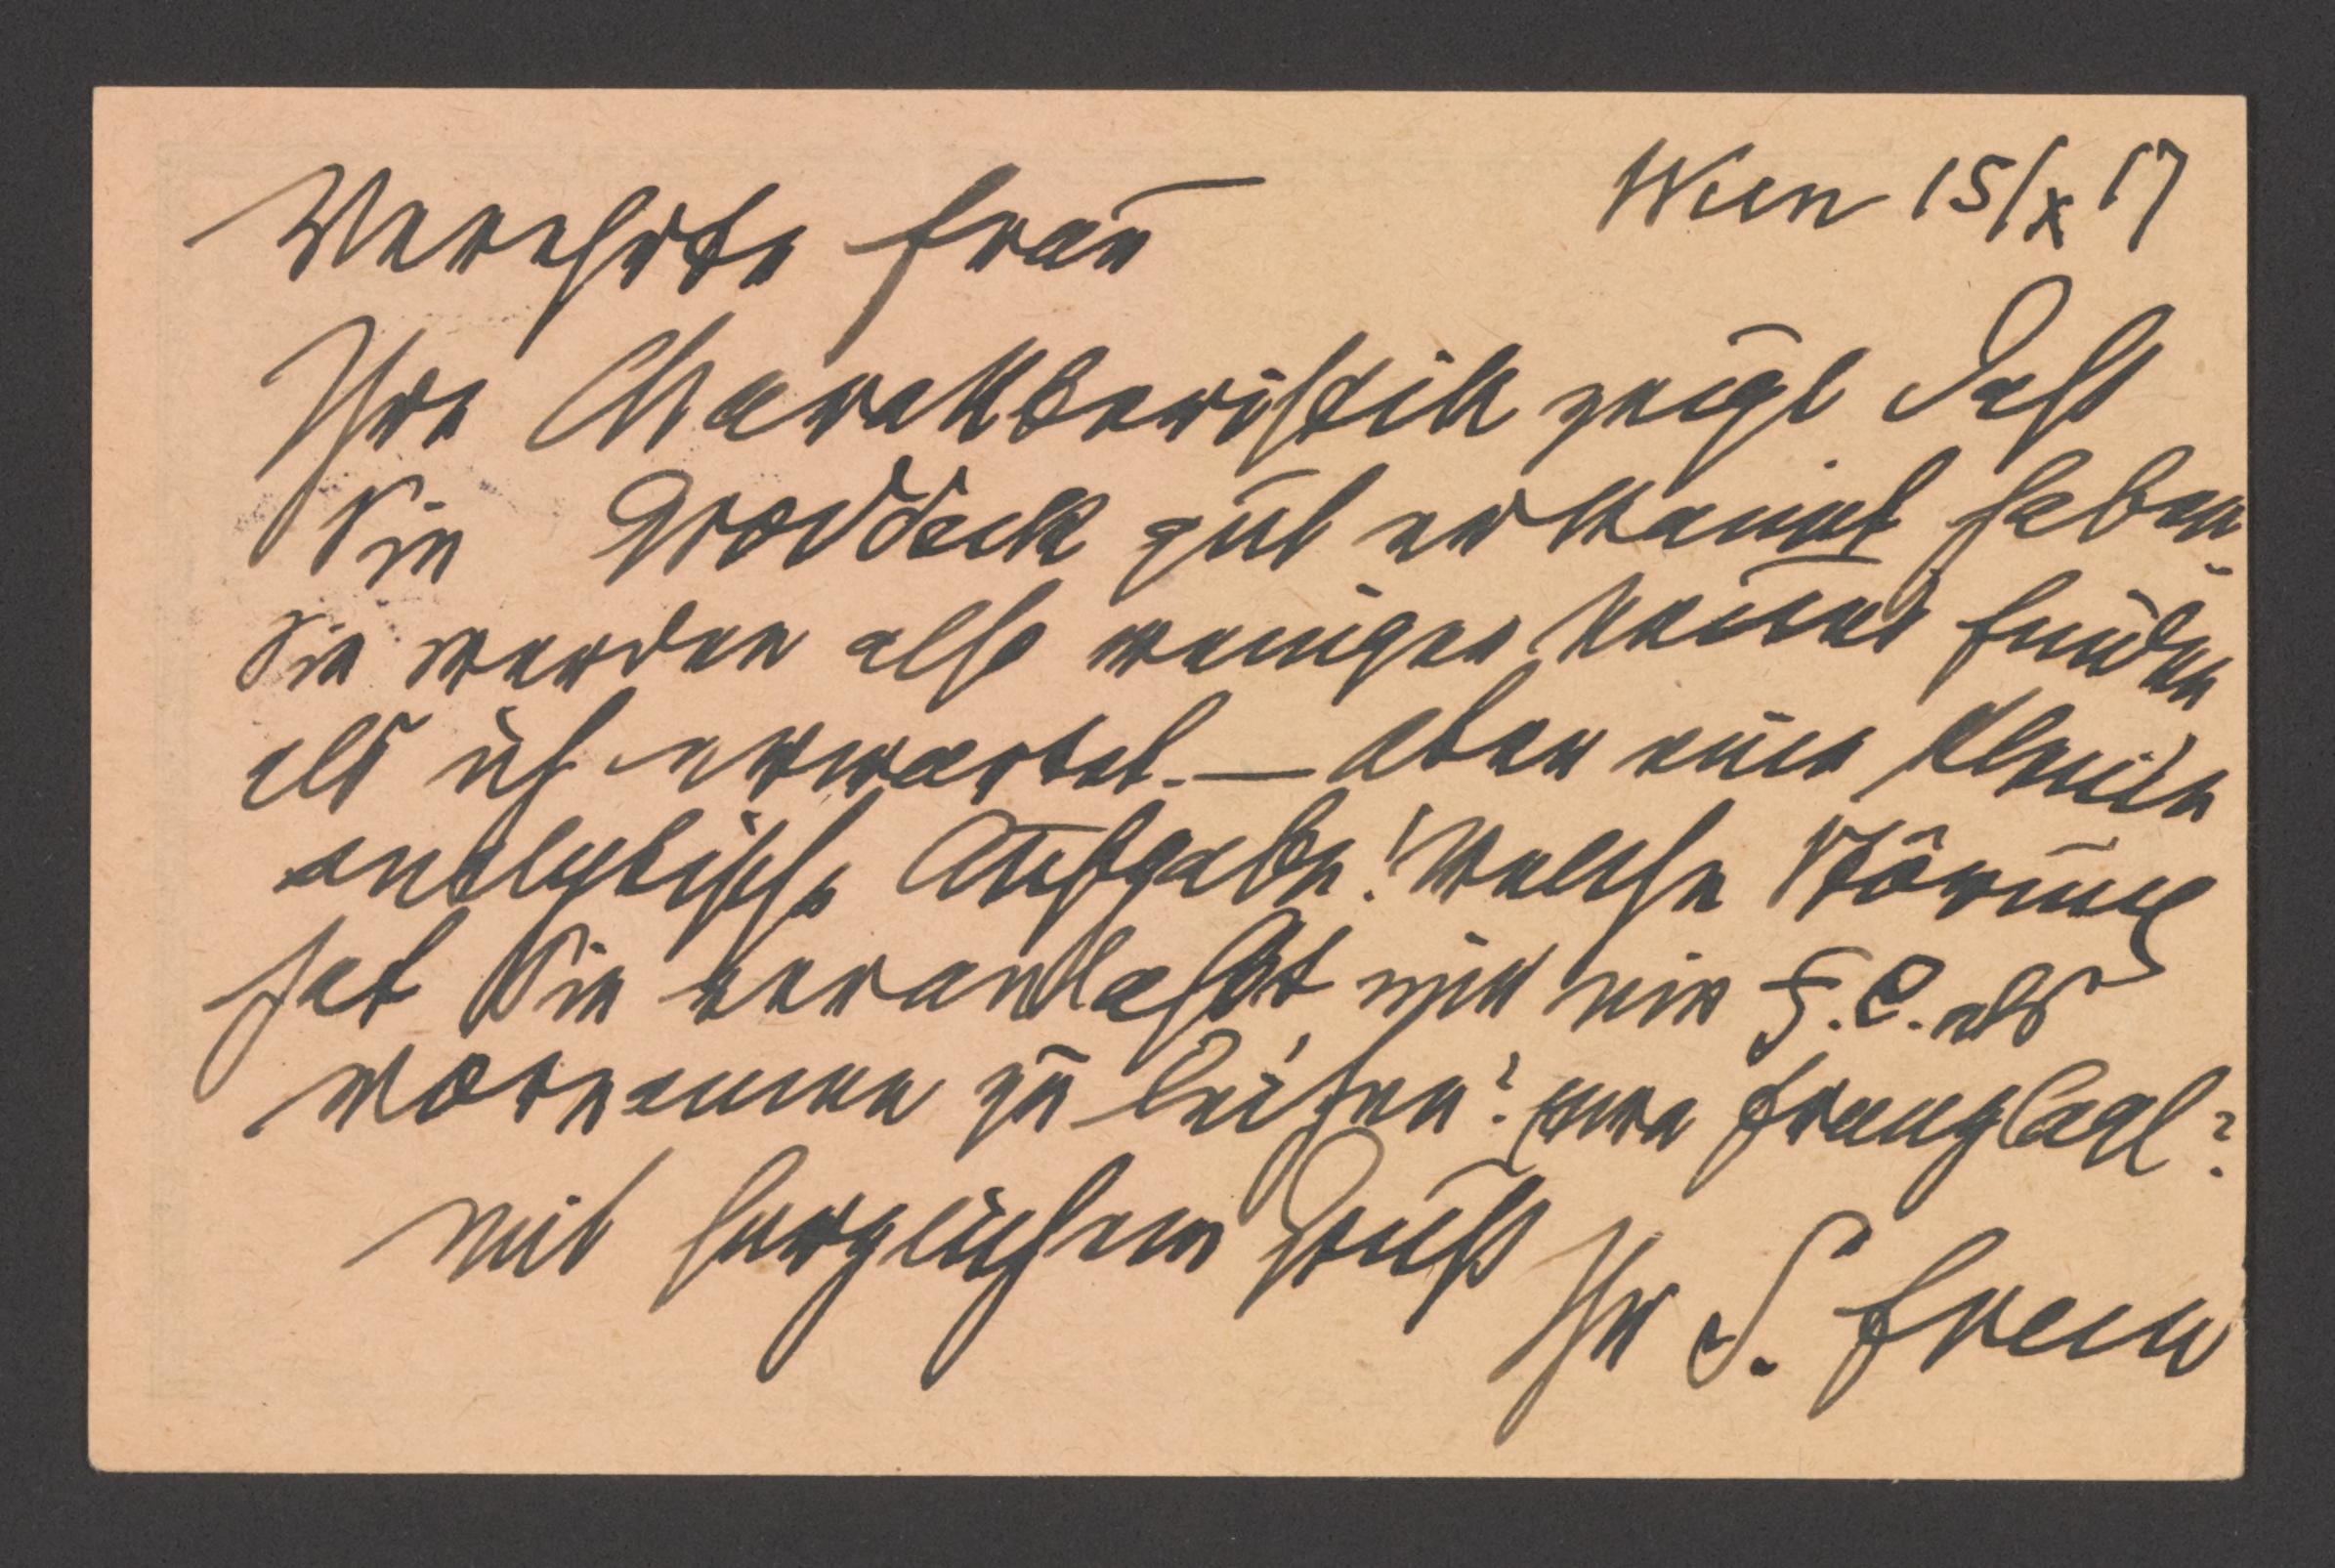 Wien 15/X 17
Verehrte Frau
Ihre Charakteristik zeigt daß
Sie Groddeck gut erkannt haben.
Sie werden also weniger Neues finden
als ich erwartet. — Aber eine kleine
analytische Aufgabe! Welche Störung
hat Sie veranlaßt mir ein F. C. als
Vornamen zu leihen?
Mit herzlichem Gruß
Ihr S. Freud